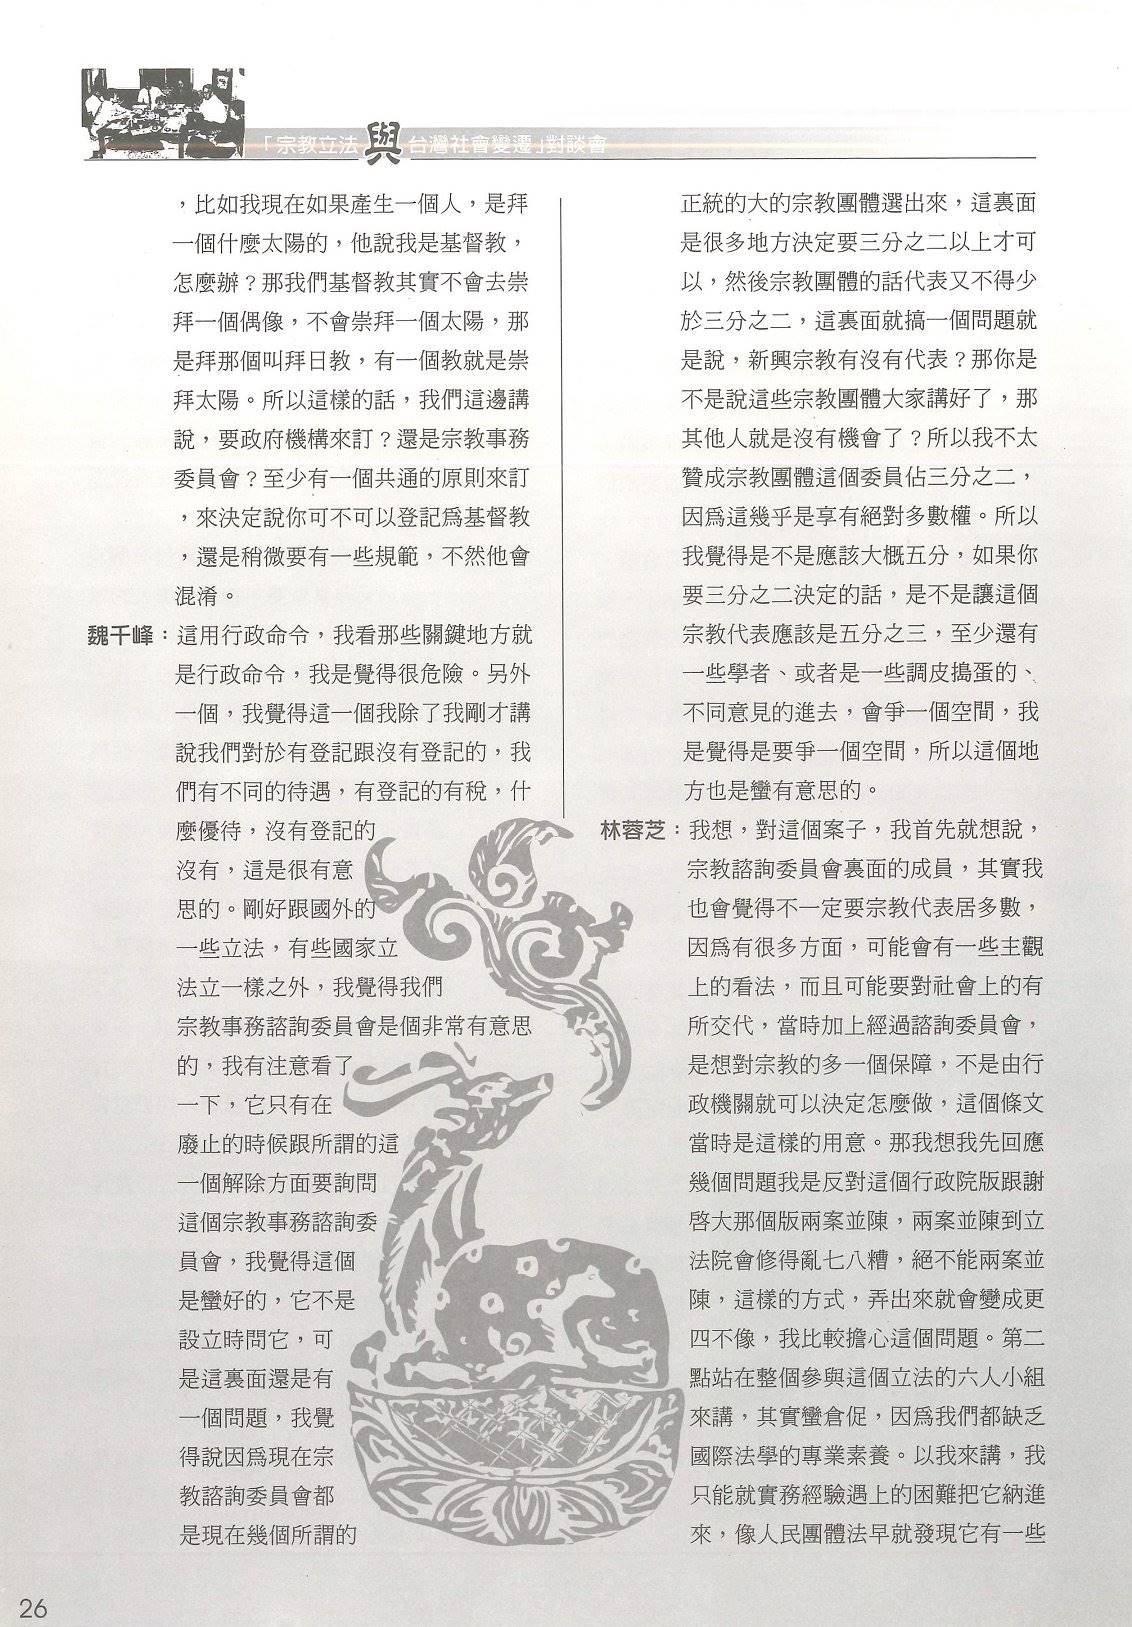 「宗教立法與台灣社會變遷」對談會
，比如我現在如果產生一個人，是拜
一個什麼太陽的，他說我是基督教，
怎麼辦？那我們基督教其實不會去崇
拜一個偶像，不會崇拜一個太陽，那
是拜那個叫拜日教，有一個教就是崇
拜太陽。所以這樣的話，我們這邊講
說，要政府機構來訂？還是宗教事務
委員會？至少有一個共通的原則來訂
，來決定說你可不可以登記爲基督教
，還是稍微要有一些規範，不然他會
混淆。
魏千峰：這用行政命令，我看那些關鍵地方就
是行政命令，我是覺得很危險。另外
一個，我覺得這一個我除了我剛才講
說我們對於有登記跟沒有登記的，我
們有不同的待遇，有登記的有稅，什
麼優待，沒有登記的
沒有，這是很有意
思的。剛好跟國外的
一些立法，有些國家立
法立一樣之外，我覺得我們
宗教事務諮詢委員會是個非常有意思
的，我有注意看了
一下，它只有在
廢止的時候跟所謂的這
一個解除方面要詢問
這個宗教事務諮詢委
員會，我覺得這個
是蠻好的，它不是
設立時問它，可
是這裏面還是有
一個問題，我覺
得說因爲現在宗
教諮詢委員會都
是現在幾個所謂的
正統的大的宗教團體選出來，這裏面
是很多地方決定要三分之二以上才可
以，然後宗教團體的話代表又不得少
於三分之二，這裏面就搞一個問題就
是說，新興宗教有沒有代表？那你是
不是說這些宗教團體大家講好了，那
其他人就是沒有機會了？所以我不太
贊成宗教團體這個委員佔三分之二，
因爲這幾乎是享有絕對多數權。所以
我覺得是不是應該大概五分，如果你
要三分之二決定的話，是不是讓這個
宗教代表應該是五分之三，至少還有
一些學者、或者是一些調皮搗蛋的、
不同意見的進去，會爭一個空間，我
是覺得是要爭一個空間，所以這個地
方也是蠻有意思的。
林蓉芝：我想，對這個案子，我首先就想說，
宗教諮詢委員會裏面的成員，其實我
也會覺得不一定要宗教代表居多數，
因爲有很多方面，可能會有一些主觀
上的看法，而且可能要對社會上的有
所交代，當時加上經過諮詢委員會，
是想對宗教的多一個保障，不是由行
政機關就可以決定怎麼做，這個條文
當時是這樣的用意。那我想我先回應
幾個問題我是反對這個行政院版跟謝
啓大那個版兩案並陳，兩案並陳到立
法院會修得亂七八糟，絕不能兩案並
陳，這樣的方式，弄出來就會變成更
四不像，我比較擔心這個問題。第二
點站在整個參與這個立法的六人小組
來講，其實蠻倉促，因爲我們都缺乏
國際法學的專業素養。以我來講，我
只能就實務經驗遇上的困難把它納進
來，像人民團體法早就發現它有一些
26